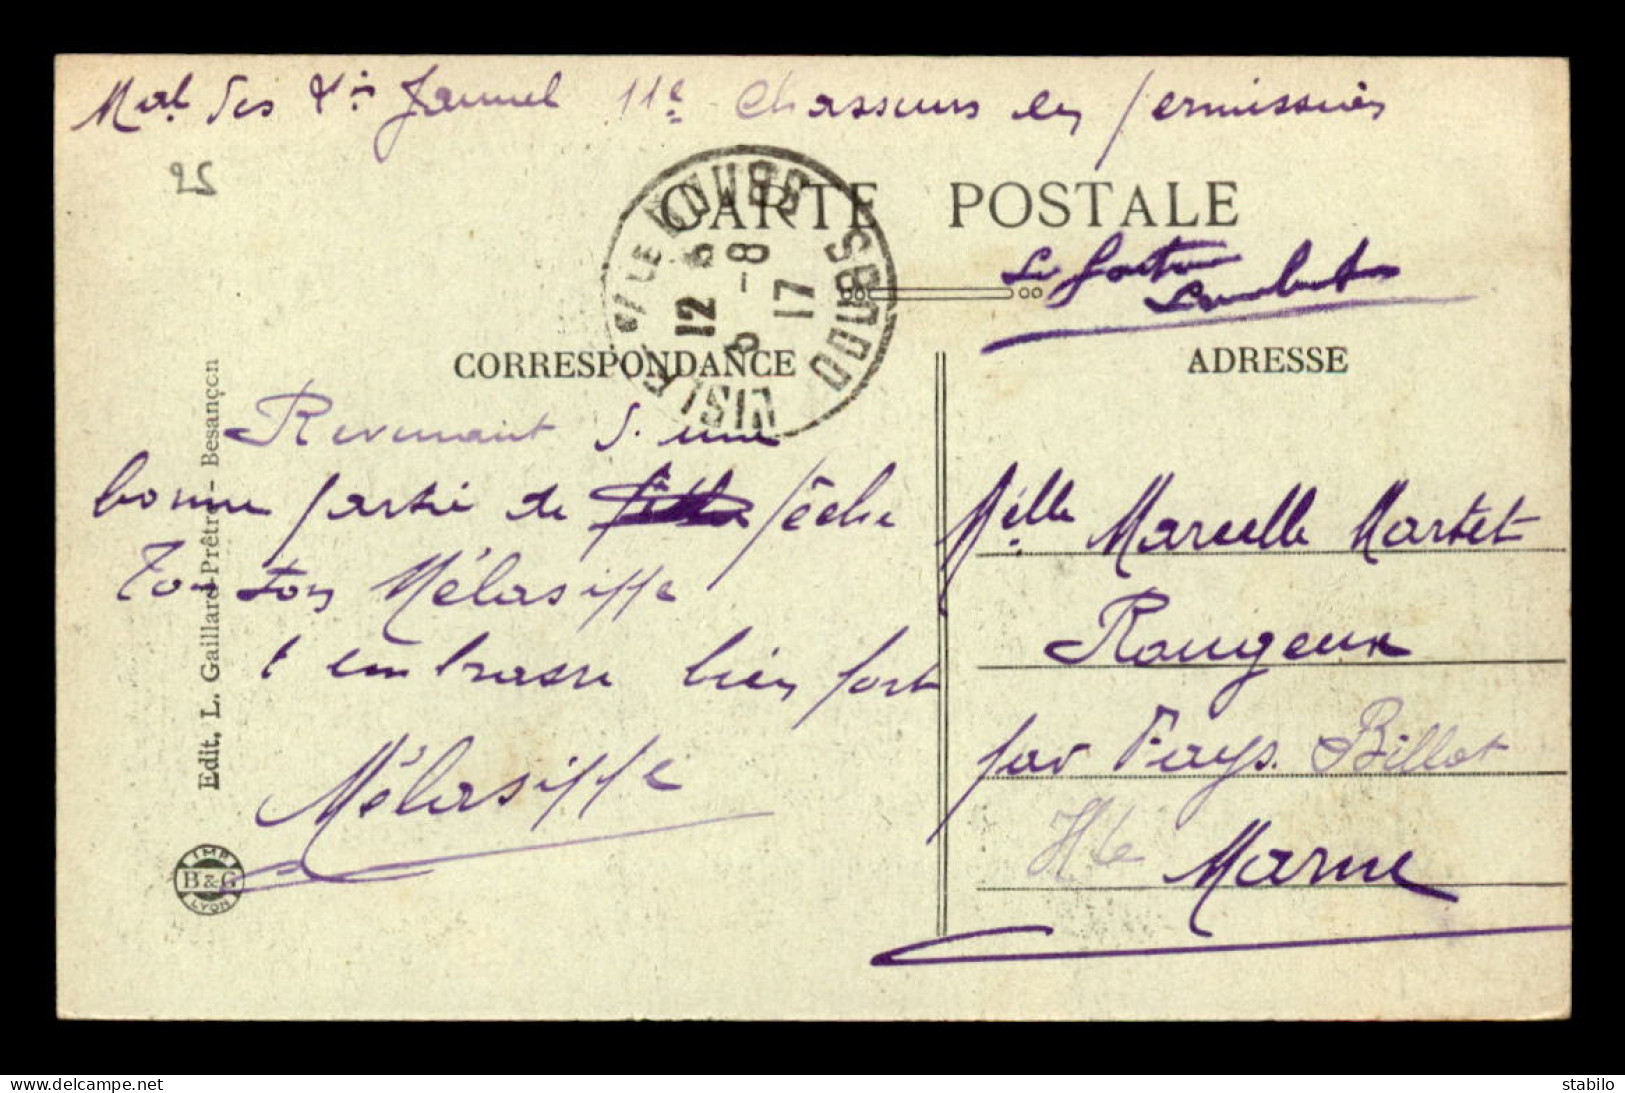 Mal des lis Jaunel 11e Chasseurs en permission
25
CARTE POSTALE
L'ISLE S/ LE DOUBS
DOUBS
12 5
8 -8
17
Le facteur
CORRESPONDANCE
ADRESSE
Revenant d'une
bonne partie de pêche
Ton ton Mélasiffe
t'embrasse bien fort
Mélasiffe
Mélle Marcelle Martet
Rougeux
par Fays. Billot
Hte Marne
Edit. L. Gaillard-Prêtre - Besançon
IMP
B&G
LYON
www.delcampe.net
stabilo